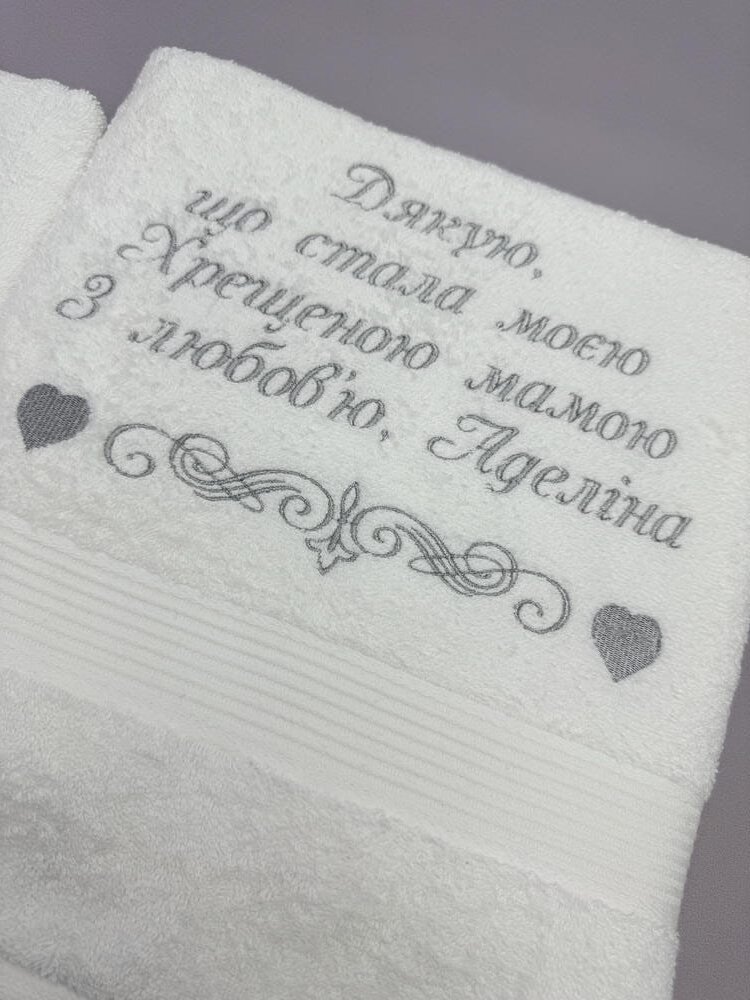 Дякую,
що стала моєю
Хрещеною мамою
З любов'ю, Аделіна